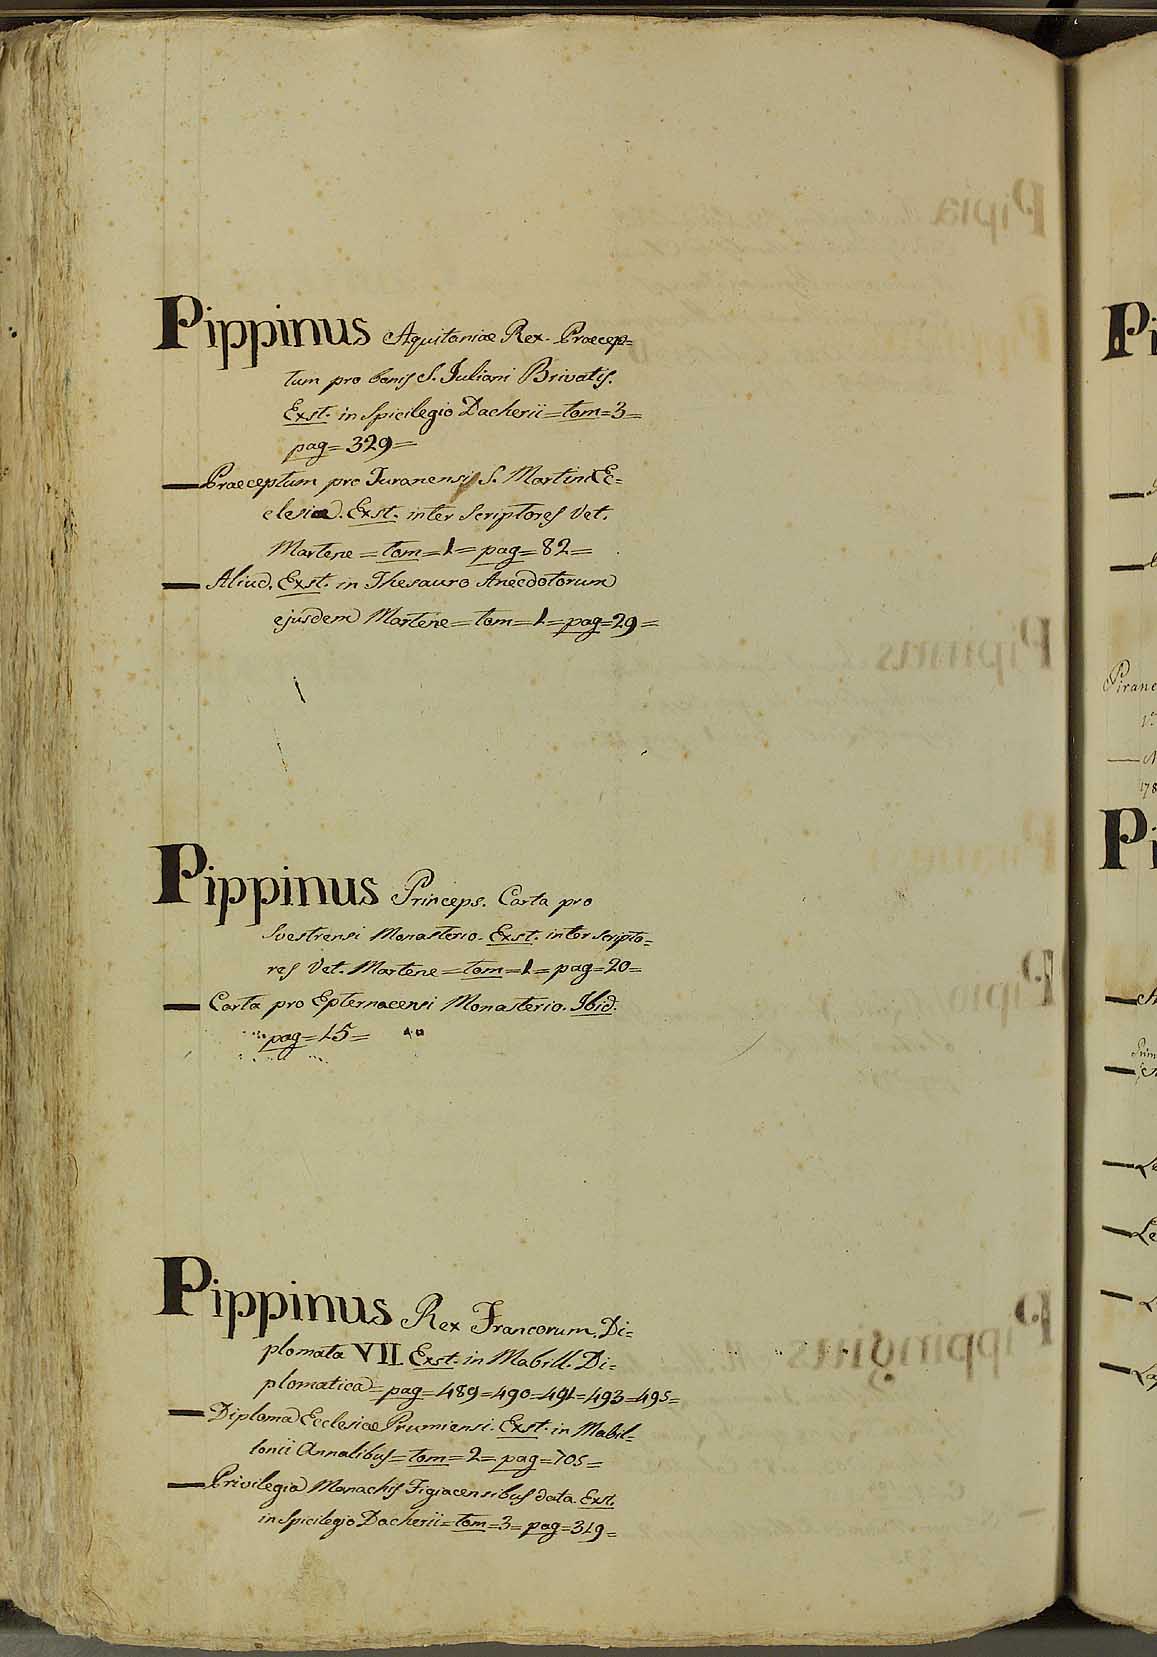 Pippinus Aquitaniæ Rex. Præcep=
tum pro bonis S. Iuliani Brivatis.
Exst. in Spicilegio Dacherii = tom = 3 =
pag = 329 =
— Præceptum pro Turanensi S. Martini Ec=
clesia. Exst. inter Scriptores Vet.
Martene = tom = 1 = pag = 82 =
— Aliud. Exst. in Thesauro Anecdotorum
ejusdem Martene = tom = 1 = pag = 29 =
Pippinus Princeps. Carta pro
Svestrensi Monasterio. Exst. inter Scripto=
res Vet. Martene = tom = 1 = pag = 20 =
— Carta pro Epternacensi Monasterio. Ibid.
pag = 15 =
Pippinus Rex Francorum. Di=
plomata VII. Exst. in Mabill. Di=
plomatica = pag = 489 = 490 = 491 = 493 = 495 =
— Diploma Ecclesiæ Prumiensi. Exst. in Mabil=
lonii Annalibus = tom = 2 = pag = 705 =
— Privilegia Monachis Figiacensibus data. Exst.
in Spicilegio Dacherii = tom = 3 = pag = 319 =